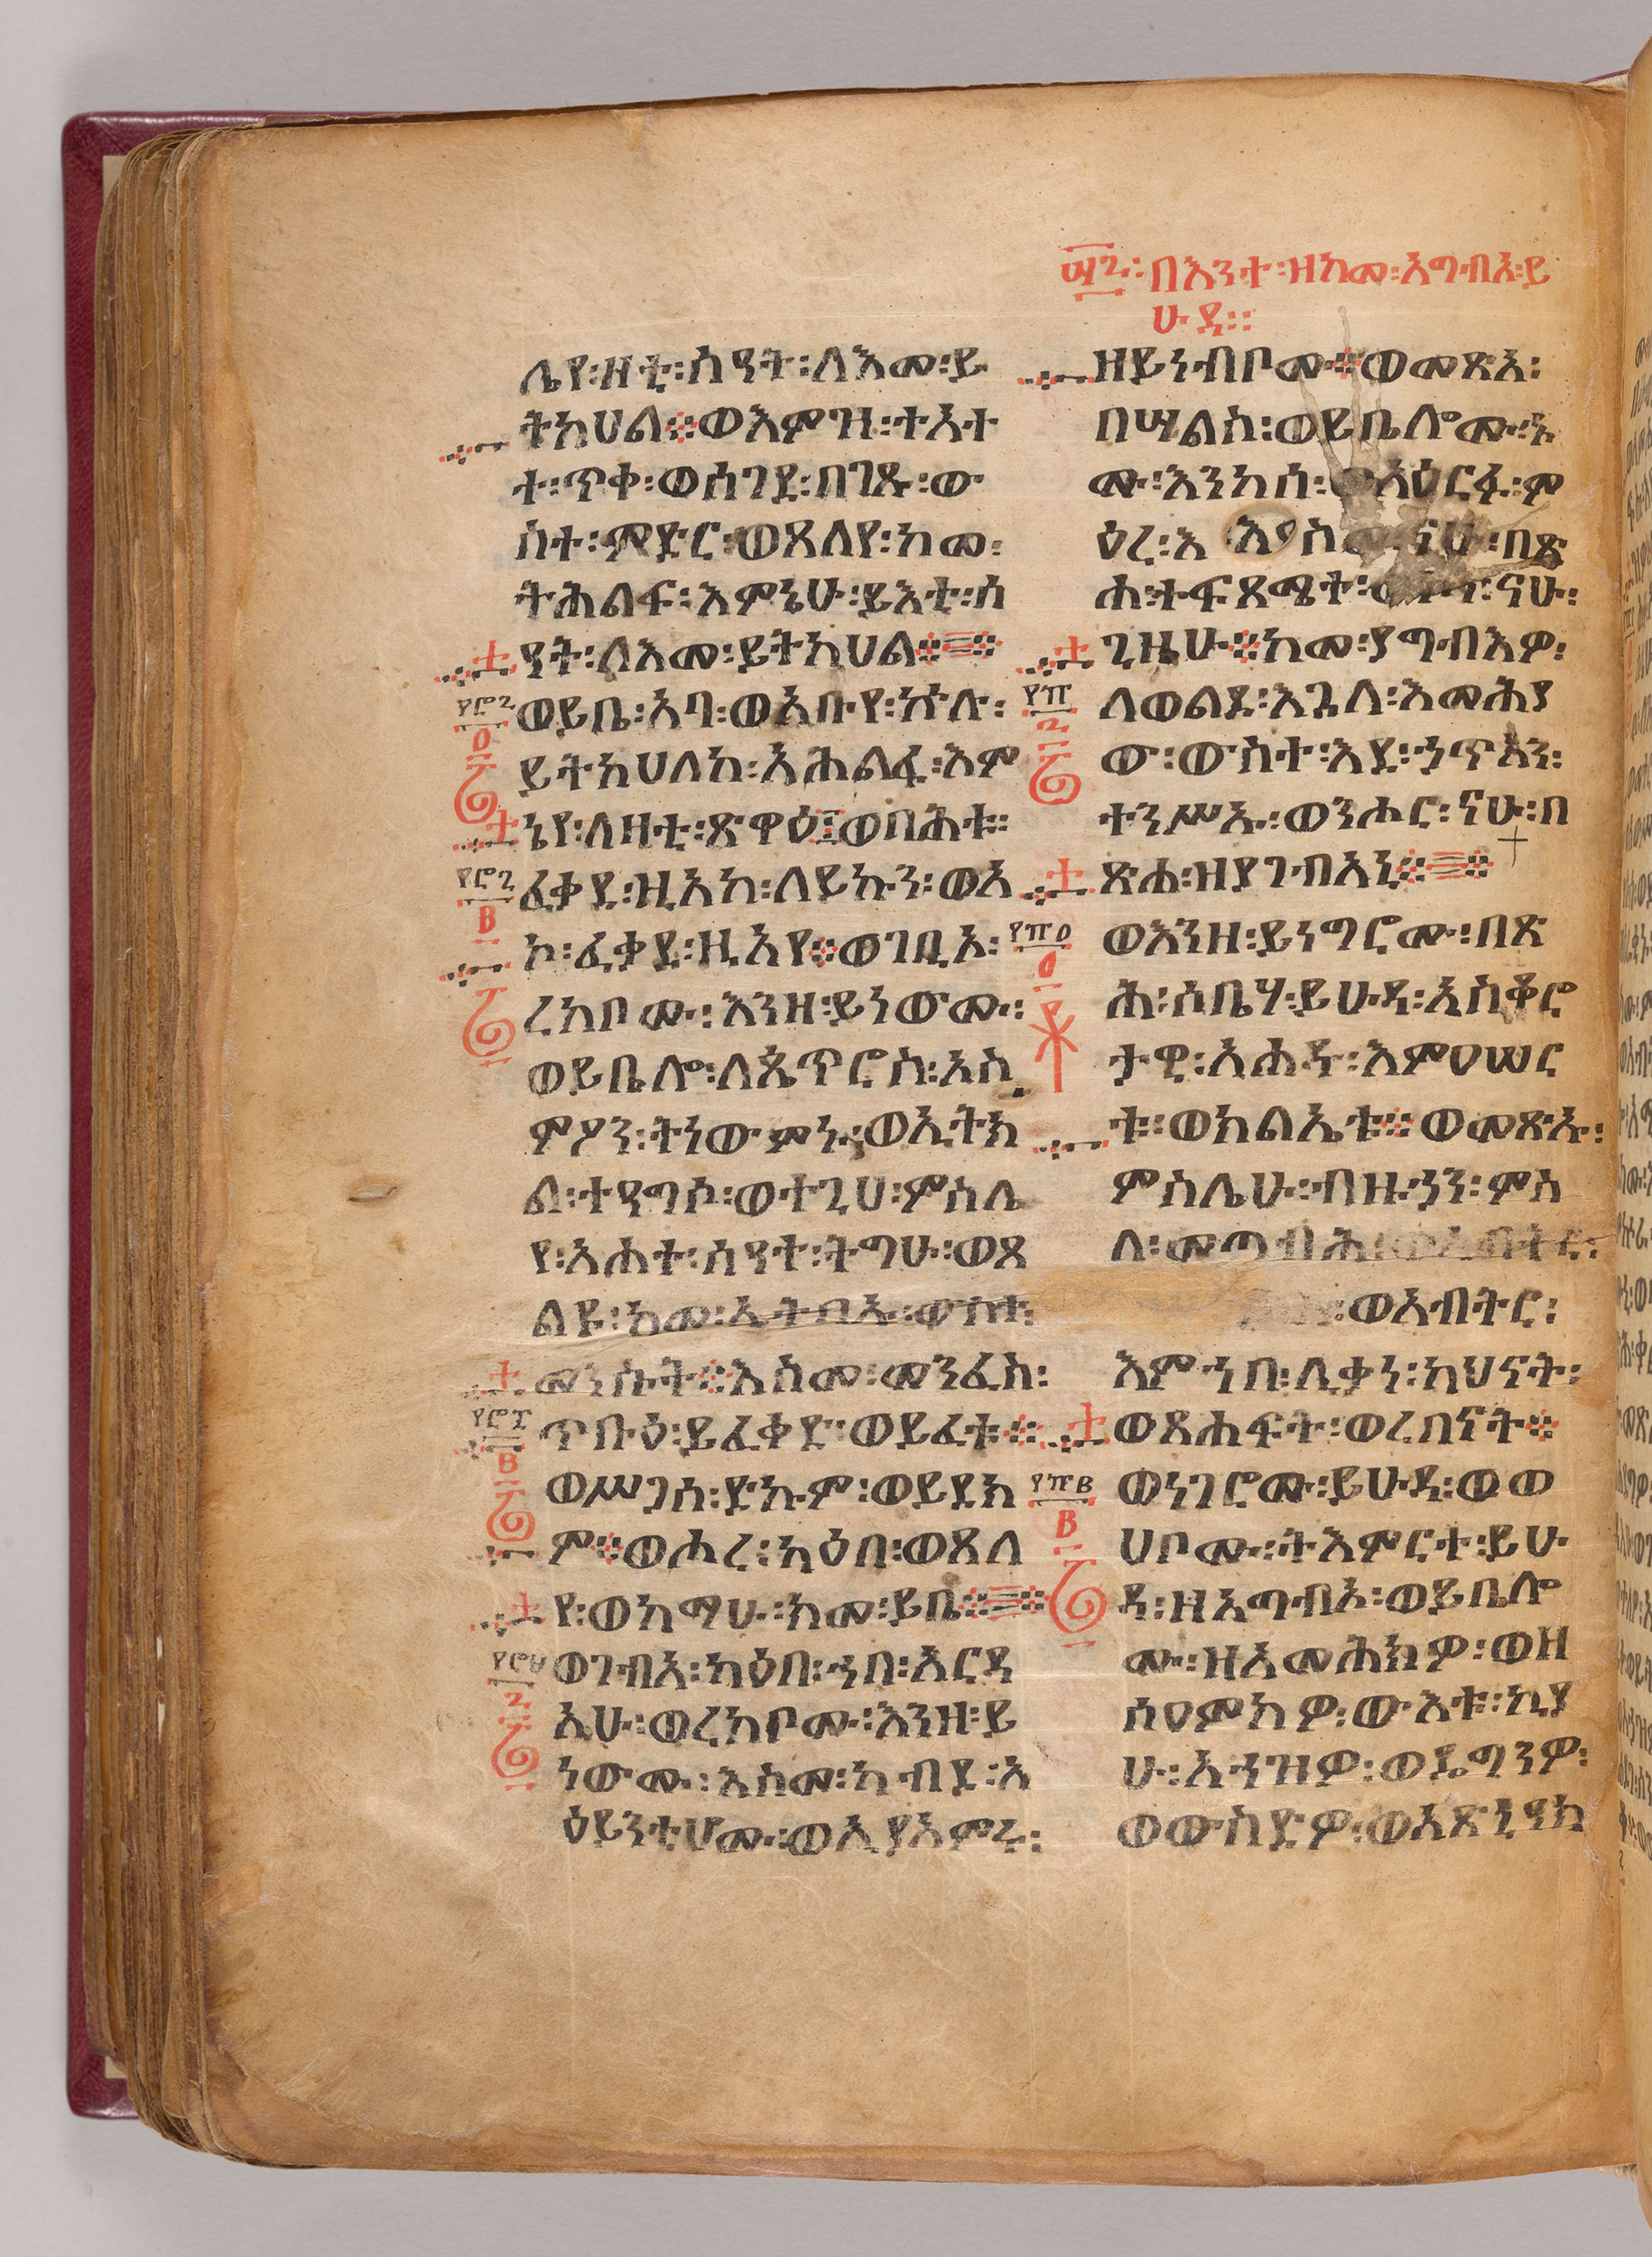 ፵፫፡ በእንተ፡ ዘከመ፡ አግብአ፡ ይ
ሁዳ፡፡
ሌየ፡ ዛቲ፡ ሰዓት፡ ለእመ፡ ይ
ትከሀል፨ ወእምዝ፡ ተአተ
ተ፡ ጥቀ፡ ወሰገደ፡ በገጹ፡ ው
ስተ፡ ምድር፡ ወጸለየ፡ ከመ፡
ትሕልፍ፡ እምኔሁ፡ ይእቲ፡ ሰ
ዓት፡ ለእመ፡ ይትከሀል፨
ወይቤ፡ አባ፡ ወአቡየ፡ ኵሉ፡
ይትከሀለከ፡ አሕልፋ፡ እም
ኔየ፡ ለዛቲ፡ ጽዋዕ፤ ወባሕቱ፡
ፈቃደ፡ ዚአከ፡ ለይኩን፡ ወአ
ኮ፡ ፈቃደ፡ ዚአየ፨ ወገቢኦ፡
ረከቦሙ፡ እንዘ፡ ይነውሙ፡
ወይቤሎ፡ ለጴጥሮስ፡ ስ
ምዖን፡ ትነውምኑ፡ ወኢትክ
ል፡ ተዓግሶ፡ ወተጊሀ፡ ምስሌ
የ፡ አሐተ፡ ሰዓተ፡ ትግሁ፡ ወጸ
ልዩ፡ ከመ፡ ኢትባኡ፡ ውስተ፡
መንሱት፨ እስመ፡ መንፈስ፡
ጥቡዕ፡ ይፈቅድ፡ ወይፈቱ፨
ወሥጋሰ፡ ድኩም፡ ወይደክ
ም፨ ወሖረ፡ ካዕበ፡ ወጸለ
የ፡ ወከማሁ፡ ከመ፡ ይቤ፨
ወገብአ፡ ካዕበ፡ ኀበ፡ አርዳ
ኢሁ፡ ወረከቦሙ፡ እንዘ፡ ይ
ነውሙ፡ እስመ፡ ከብደ፡ አ
ዕይንቲሆሙ፡ ወኢያአምሩ፡
ዘይነብቦሙ፨ ወመጽአ፡
በሣልስ፡ ወይቤሎሙ፡ ኑ
ሙ፡ እንከሰ፡ ወአዕርፉ፡ ም
ዕረ፡ እስመ፡ ናሁ፡ በጽ
ሐ፡ ተፍጻሜት፡ ናሁ፡
ጊዜሁ፨ ከመ፡ ያግብእዎ፡
ለወልደ፡ እጓለ፡ እመሕያ
ው፡ ውስተ፡ እደ፡ ኃጥኣን፡
ተንሥኡ፡ ወንሖር፡ ናሁ፡ በ
ጽሐ፡ ዘያገብአኒ፨
ወእንዘ፡ ይነግሮሙ፡ በጽ
ሐ፡ ሶቤሃ፡ ይሁዳ፡ አስቆሮ
ታዊ፡ አሐዱ፡ እምዐሠር
ቱ፡ ወክልኤቱ፨ ወመጽኡ፡
ምስሌሁ፡ ብዙኃን፡ ምስ
ለ፡ መጣብሕ፡
ወአብትር፡
እምኀበ፡ ሊቃነ፡ ካህናት፡
ወጸሐፍት፡ ወረበናት፨
ወነገሮሙ፡ ይሁዳ፡ ወወ
ሀቦሙ፡ ትእምርተ፡ ይሁ
ዳ፡ ዘአግብኦ፡ ወይቤሎ
ሙ፡ ዘአመሕክዎ፡ ወዘ
ሰዐምክዎ፡ ውእቱ፡ ኪያ
ሁ፡ አኀዝዎ፡ ወዴግንዎ፡
ወውስድዎ፡ ወአጽንዓክ